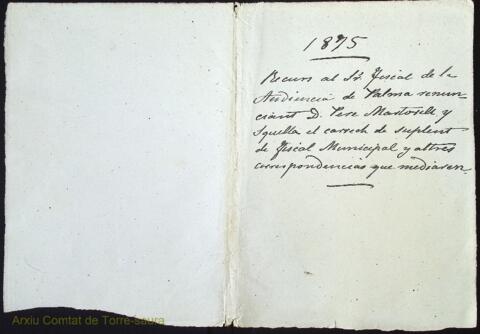 1875
Recurs al Sr. Fiscal de la
Audiencia de Palma renun-
ciant D. Pere Martorell y
Squella el carrech de suplent
de Fiscal Municipal y altres
correspondencias que mediaren.
Arxiu Comtat de Torre-saura